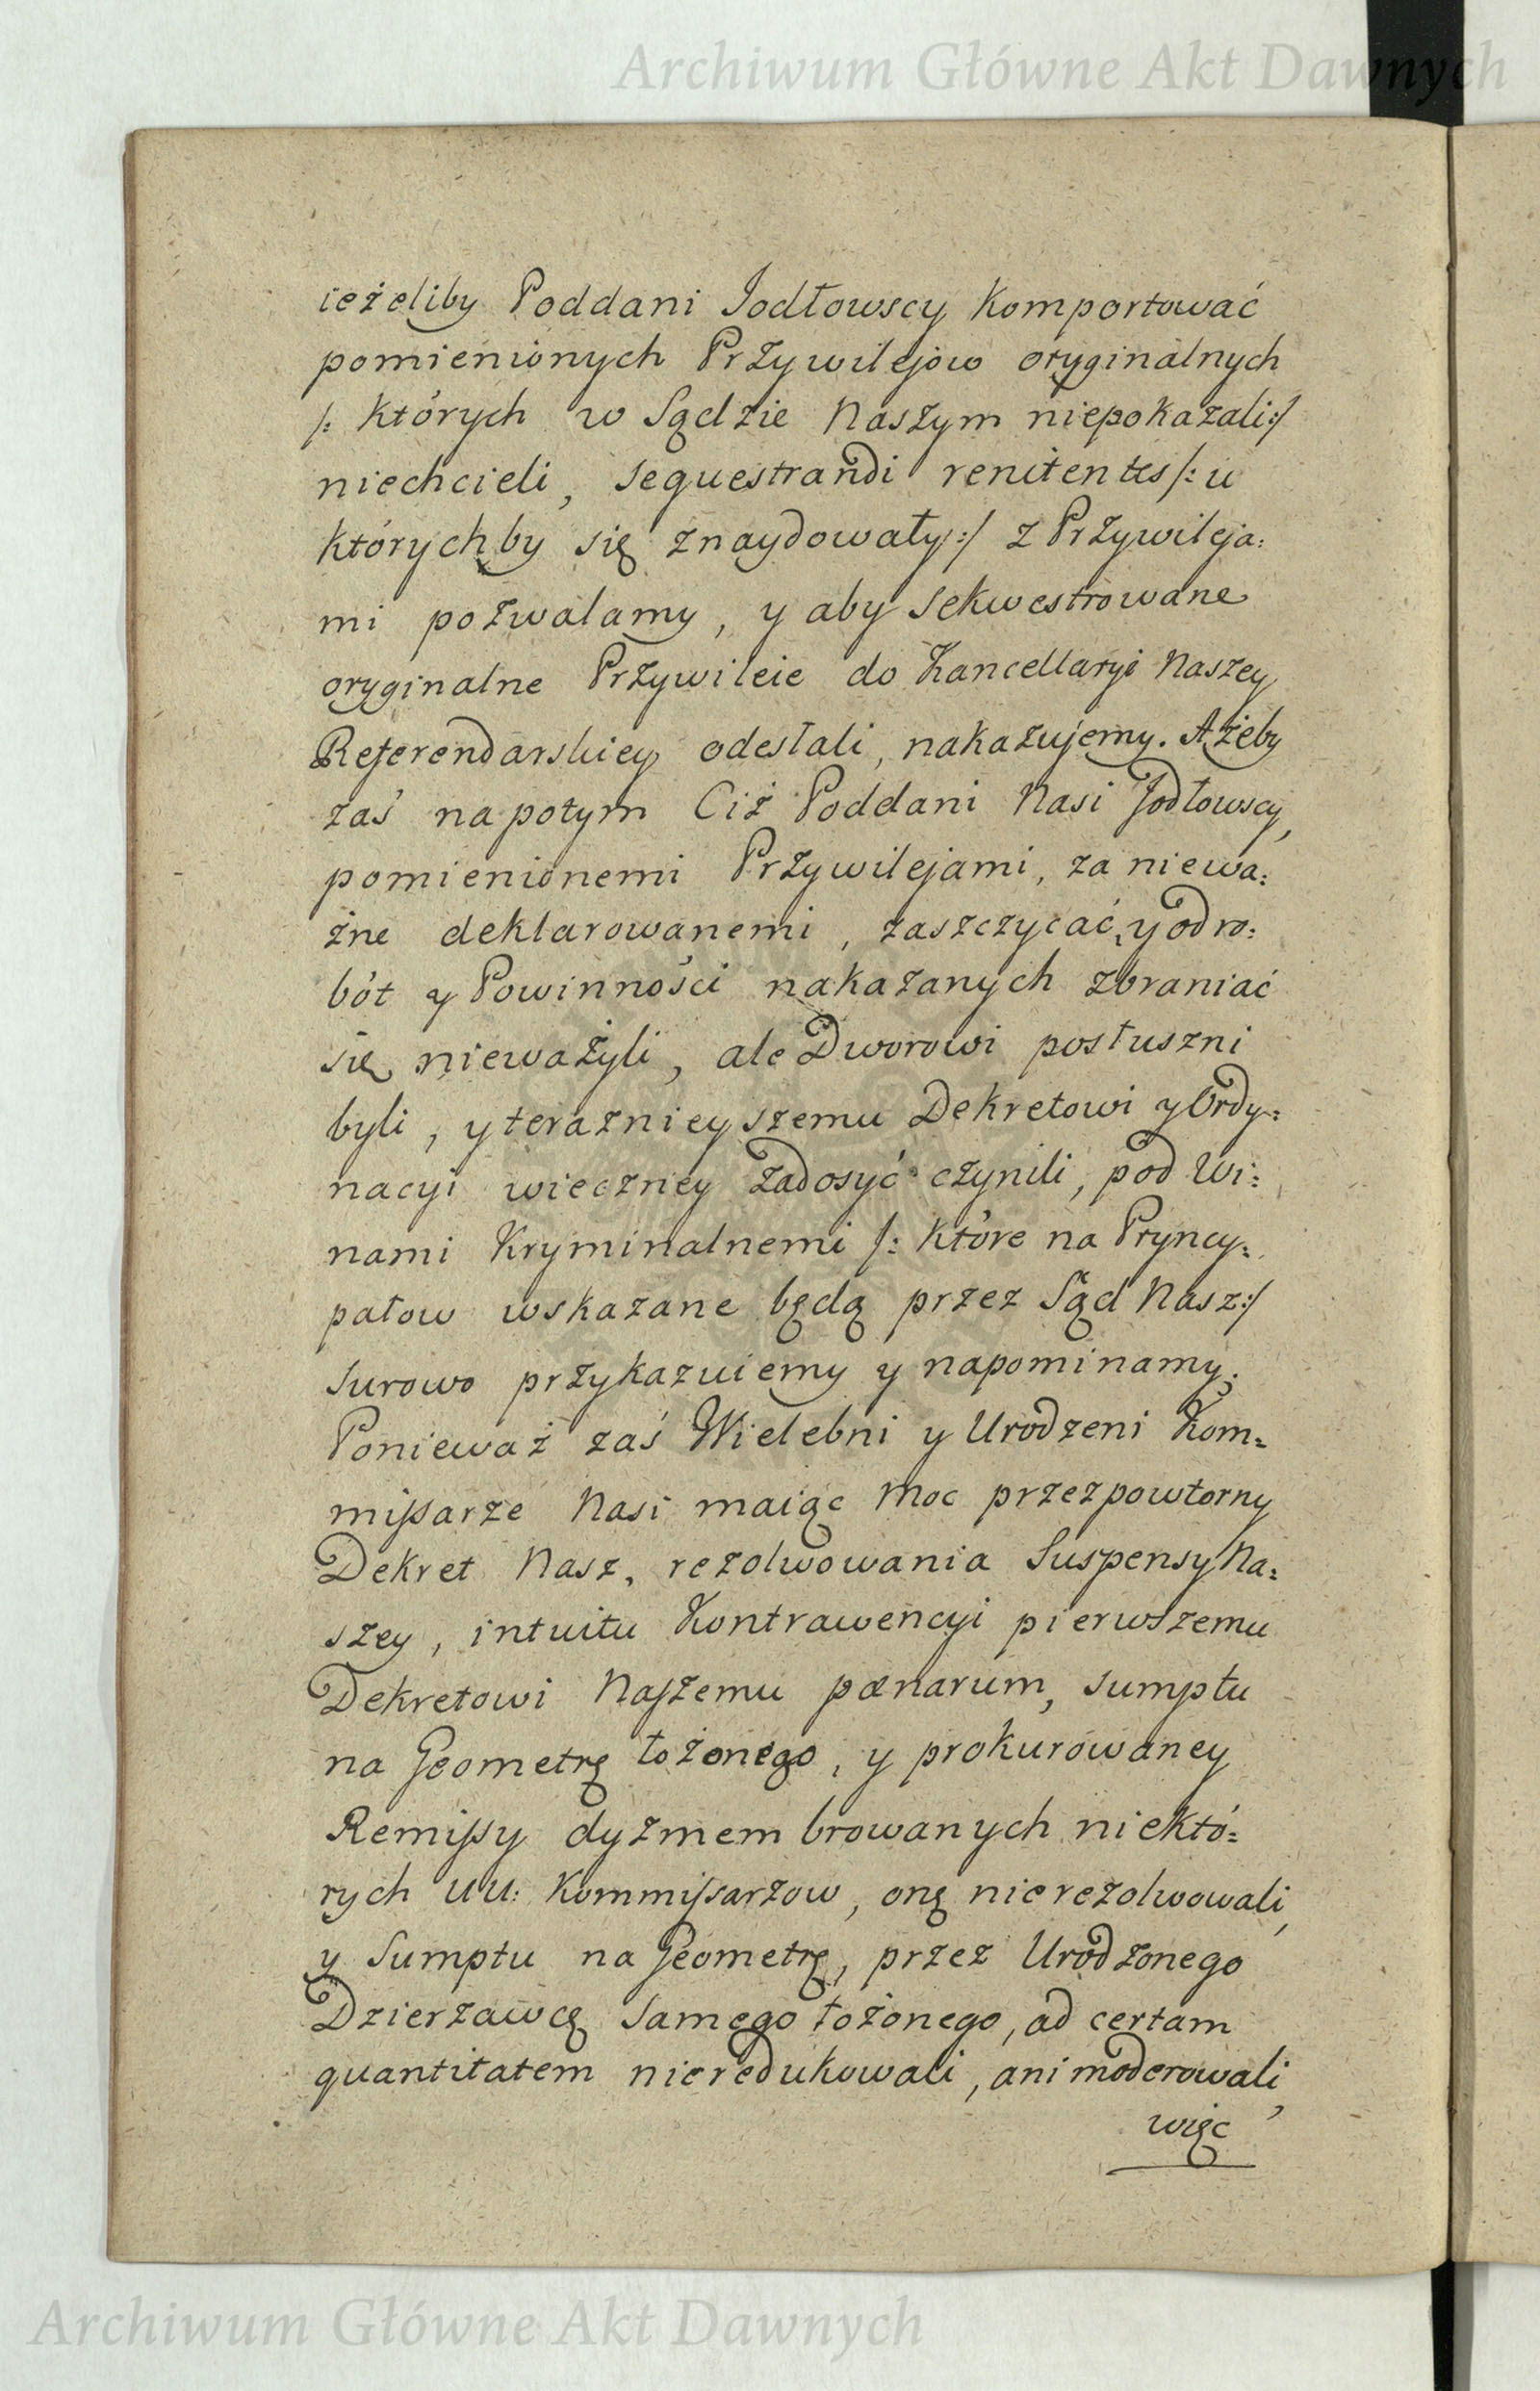 Archiwum Główne Akt Dawnych
ieżeliby Poddani Jodłowscy Komportować
pomienionych Przywilejow oryginalnych
/: których w Sądzie Naszym niepokazali :/
niechcieli, sequestrandi renitentes /: u
których by się znaydowały :/ z Przywileja:
mi pozwalamy, y aby sekwestrowane
oryginalne Przywileie do Kancellaryi Naszey
Referendarskiey odesłali, nakazujemy. Ażeby
zaś napotym Ciż Poddani Nasi Jodłowscy,
pomienionemi Przywilejami, za niewa:
żne deklarowanemi, zaszczycać, y od ro:
bót y Powinności nakazanych zbraniać
się nieważyli, ale Dworowi posłuszni
byli, y terazniey szemu Dekretowi y Ordy:
nacyi wieczney zadosyć czynili, pod Wi:
nami Kryminalnemi /: które na Pryncy:
pałow wskazane będą przez Sąd Nasz :/
surowo przykazuiemy y napominamy;
Ponieważ zaś Wielebni y Urodzeni Kom:
missarze Nasi maiąc Moc przez powtorny
Dekret Nasz, rezolwowania Suspensy Na:
szey, intuitu Kontrawencyi pierwszemu
Dekretowi Naszemu pœnarum, sumptu
na Geometrę łożonego, y prokurowaney
Remissy dyzmembrowanych niektó:
rych UU: Kommissarzow, onę nierezolwowali,
y Sumptu na Geometrę, przez Urodzonego
Dzierzawcę samego łożonego, ad certam
quantitatem nieredukowali, ani moderowali,
więc
Archiwum Główne Akt Dawnych